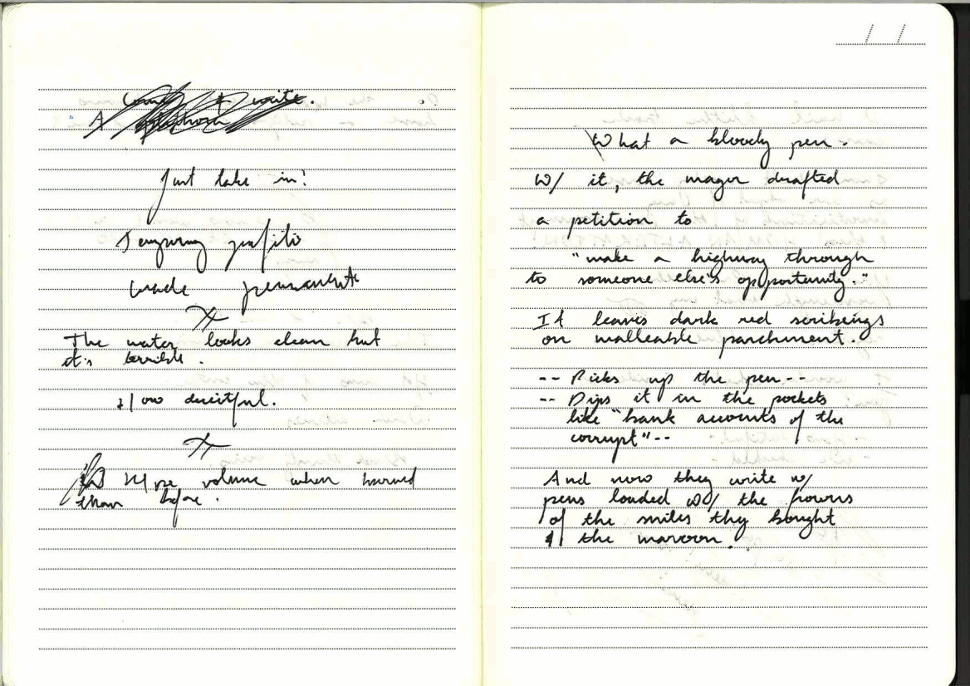 write.
A
Just take in!
Temporary graffiti
made permanent
The water looks clean but
it's terrible.
How deceitful.
More volume when burned
than before.
What a bloody pen.
W/ it, the mayor drafted
a petition to
"make a highway through
to someone else's opportunity."
It leaves dark red scribings
on malleable parchment.
-- Picks up the pen --
-- Dips it in the pockets
like "bank accounts of the
corrupt" --
And now they write w/
pens loaded w/ the frowns
of the smiles they bought
the maroon.